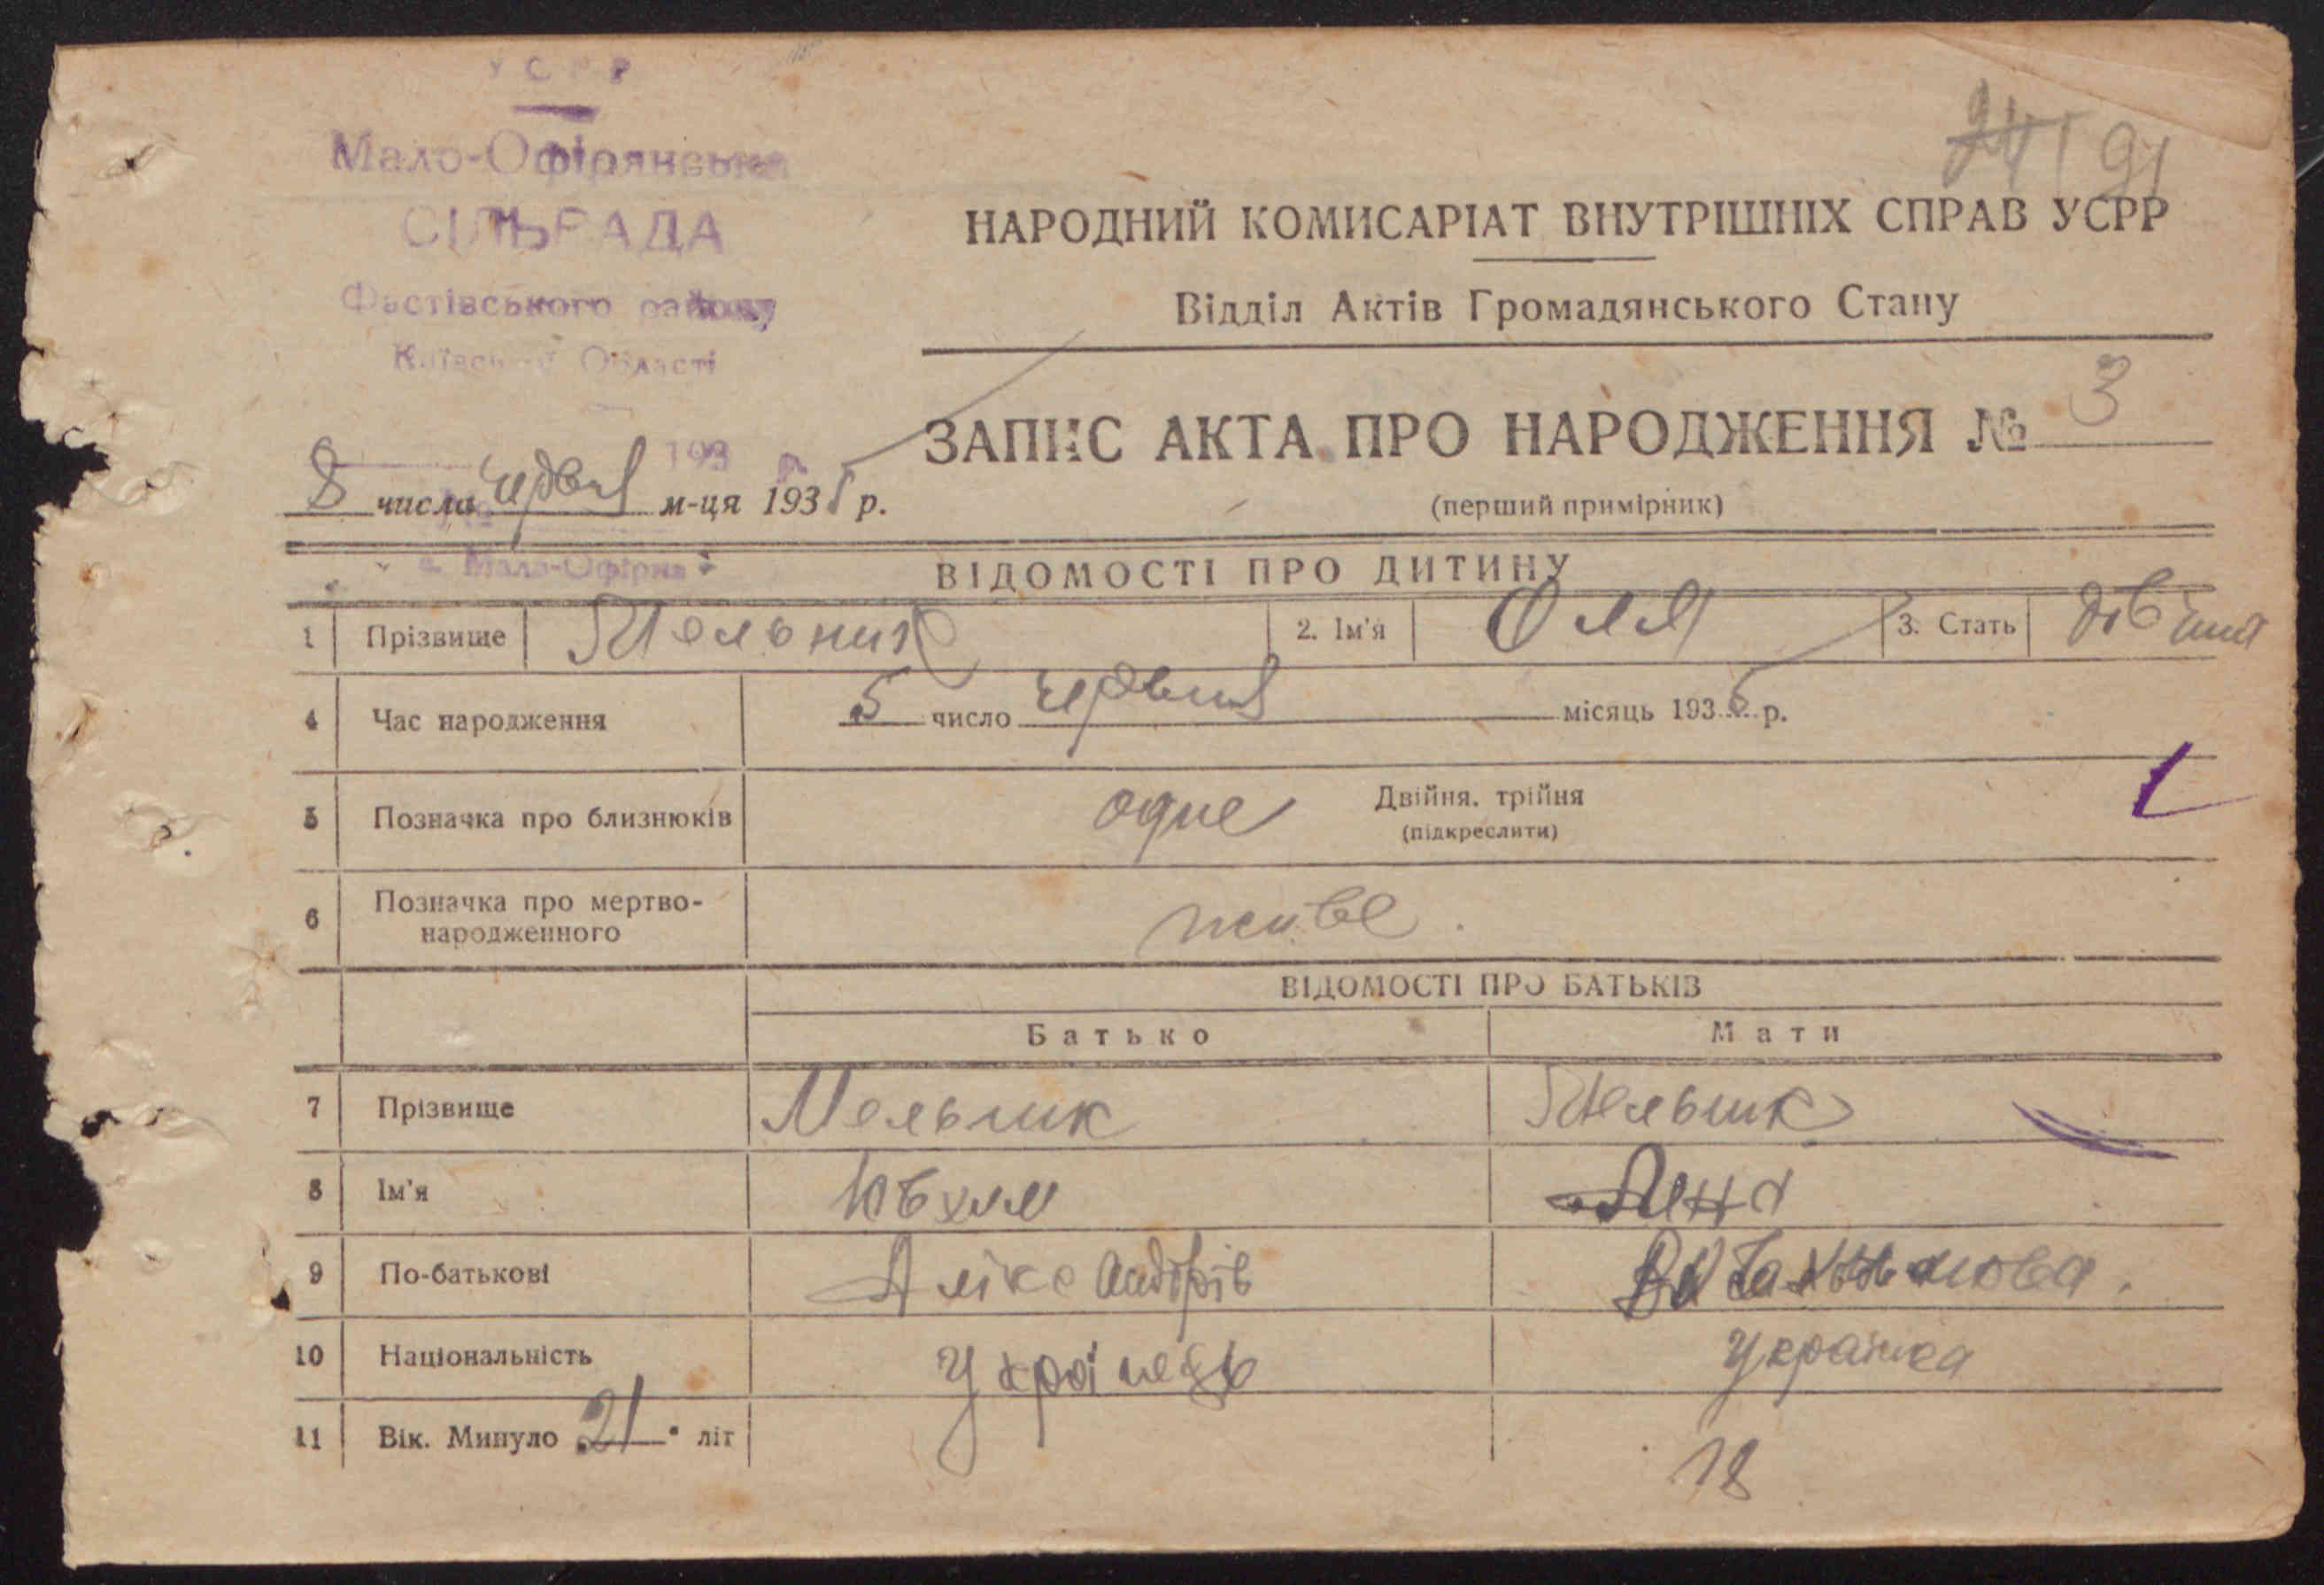 УСРР
Мало-Офірянська
СІЛЬРАДА
Фастівського району
Київської Області
193 р.
с. Мало-Офірна
24 91
НАРОДНИЙ КОМИСАРІАТ ВНУТРІШНІХ СПРАВ УСРР
Відділ Актів Громадянського Стану
ЗАПИС АКТА ПРО НАРОДЖЕННЯ № 3
(перший примірник)
8 числа червня м-ця 1935 р.
ВІДОМОСТІ ПРО ДИТИНУ
1 Прізвище Мельник 2. Ім'я Оля 3. Стать
4 Час народження 5 число червня місяць 1935 р.
5 Позначка про близнюків одне Двійня, трійня
(підкреслити)
6 Позначка про мертво-
народженного живе.
ВІДОМОСТІ ПРО БАТЬКІВ
Батько Мати
7 Прізвище Мельник Мельник
8 Ім'я Юхим
9 По-батькові
10 Національність Украінець Украінка
11 Вік. Минуло 21 літ 18